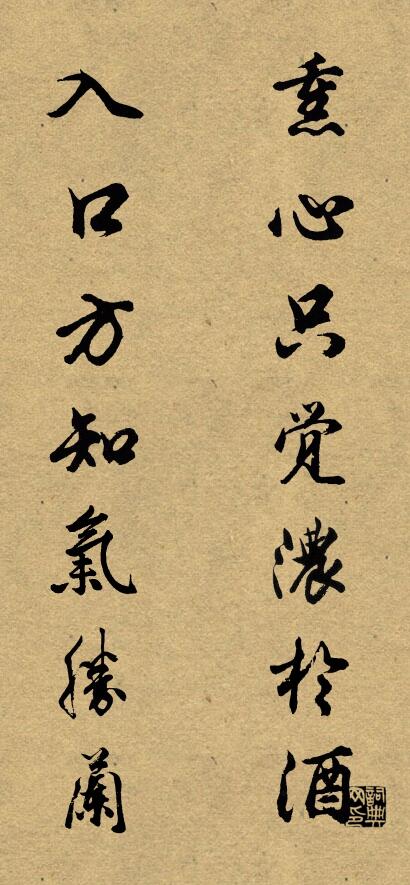 熏心只覺濃於酒
入口方知氣勝蘭